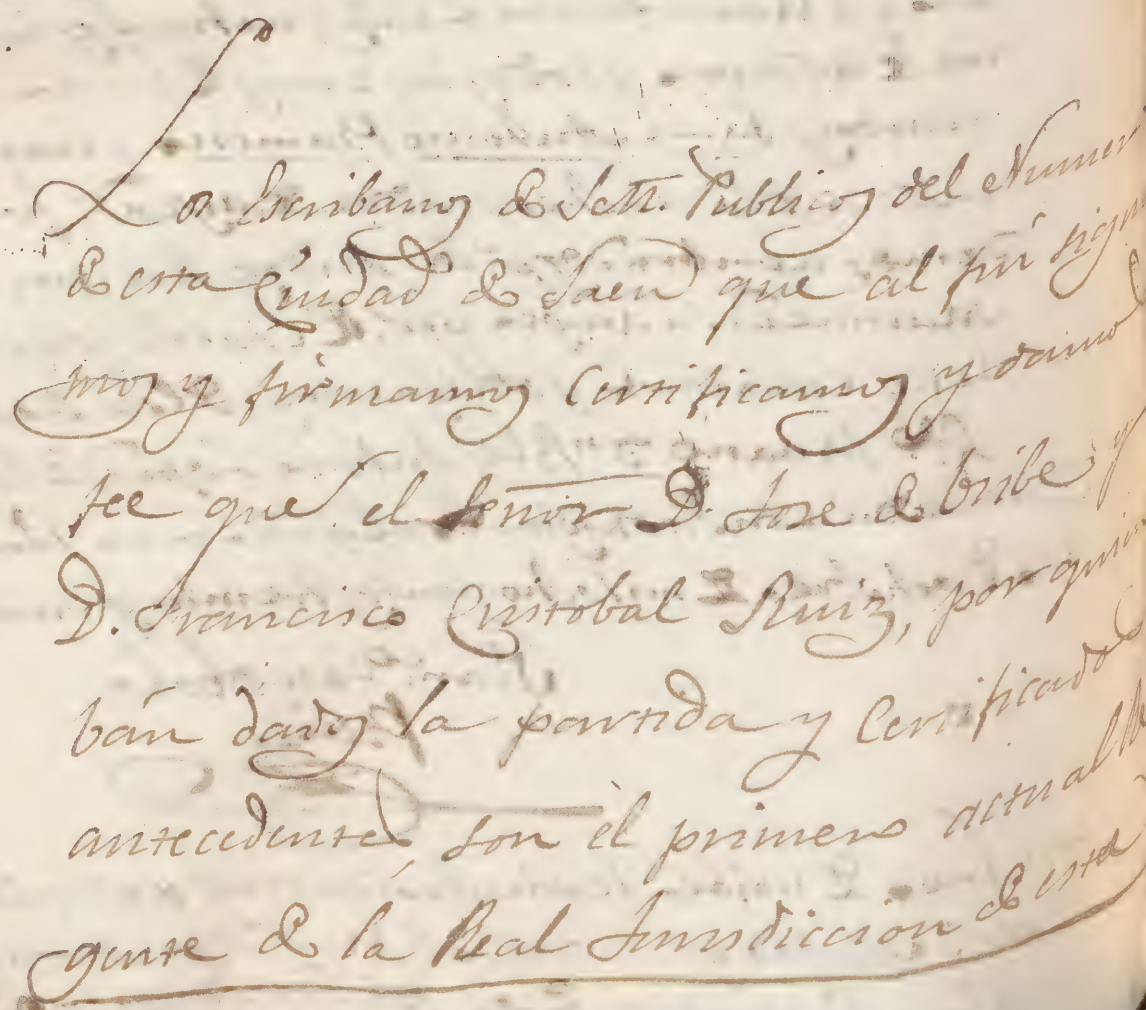 Los Escribanos de Sett. Publicos del Numer
de esta Ciudad de Jaen que al fin sign
mos y firmamos Certificamos y damo
fee que el Señor D. Jose de Uribe y
D. Francisco Cristobal Ruiz, por quien
bán dados la partida y Certificado
antecedente, son él primero actual R
gente de la Real Jurisdiccion de esta